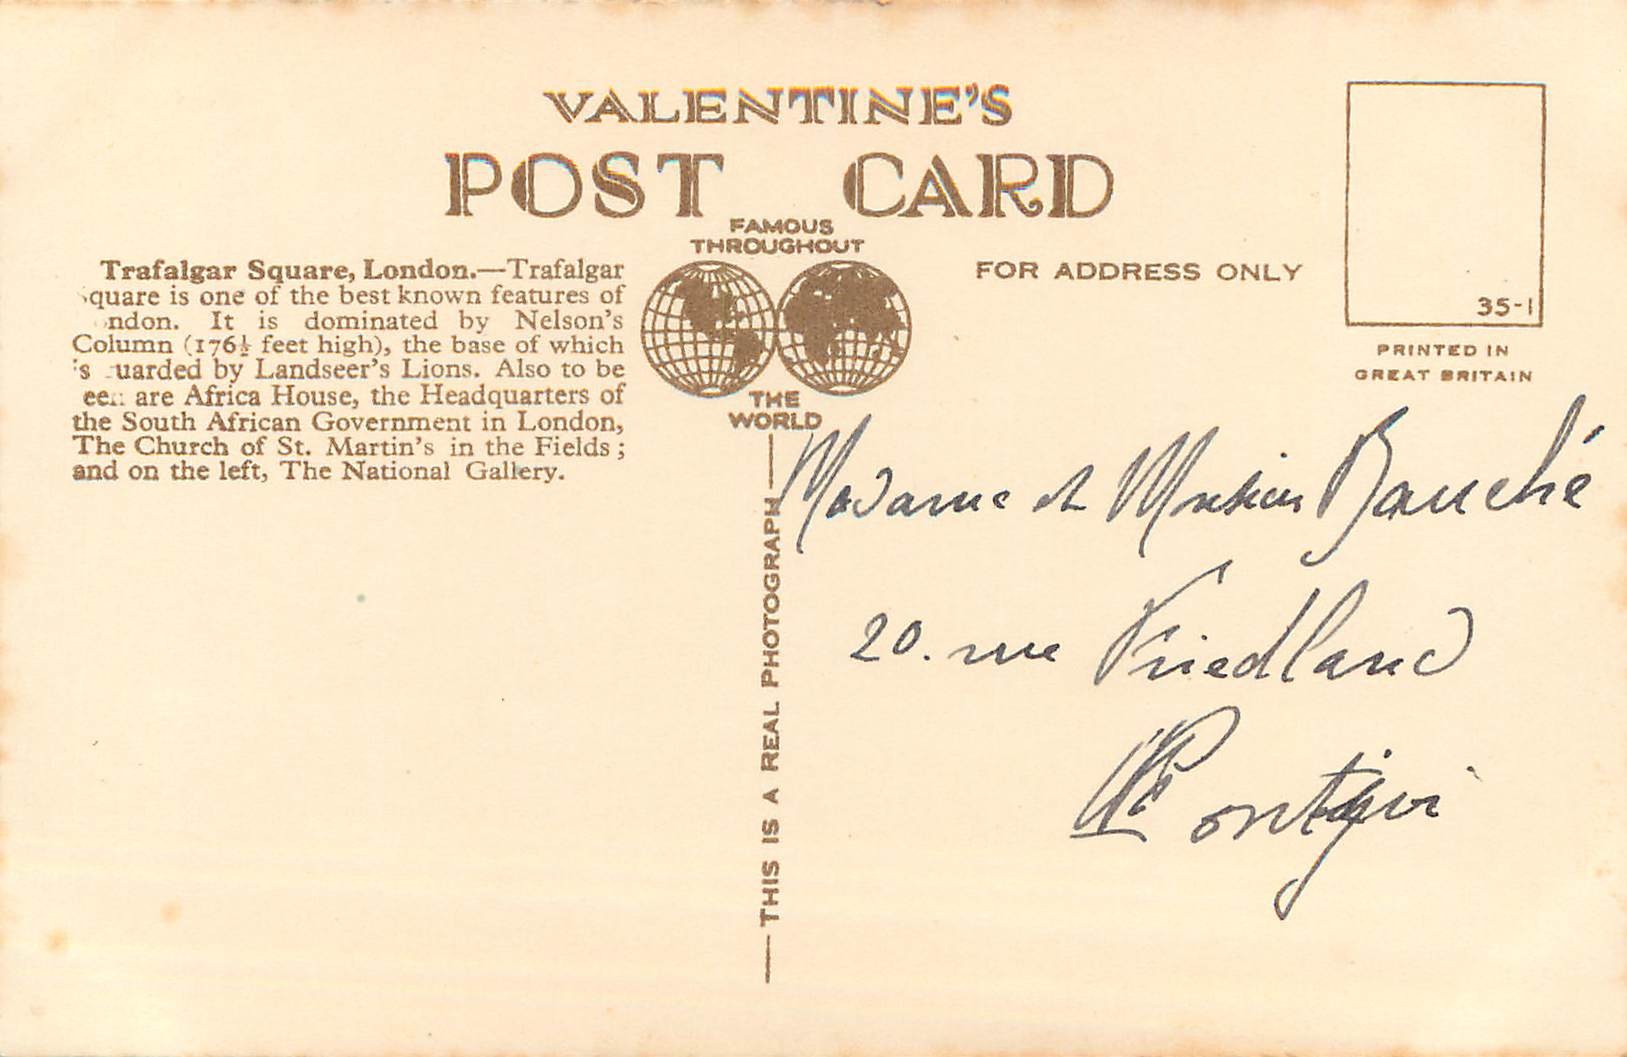 VALENTINE'S
POST CARD
FAMOUS
THROUGHOUT
THE
WORLD
FOR ADDRESS ONLY
35-1
PRINTED IN
GREAT BRITAIN
Trafalgar Square, London.—Trafalgar
quare is one of the best known features of
ndon. It is dominated by Nelson's
Column (176½ feet high), the base of which
's uarded by Landseer's Lions. Also to be
een are Africa House, the Headquarters of
the South African Government in London,
The Church of St. Martin's in the Fields;
and on the left, The National Gallery.
THIS IS A REAL PHOTOGRAPH
Madame et Monsieur Bauché
20. rue Friedland
Pontivi